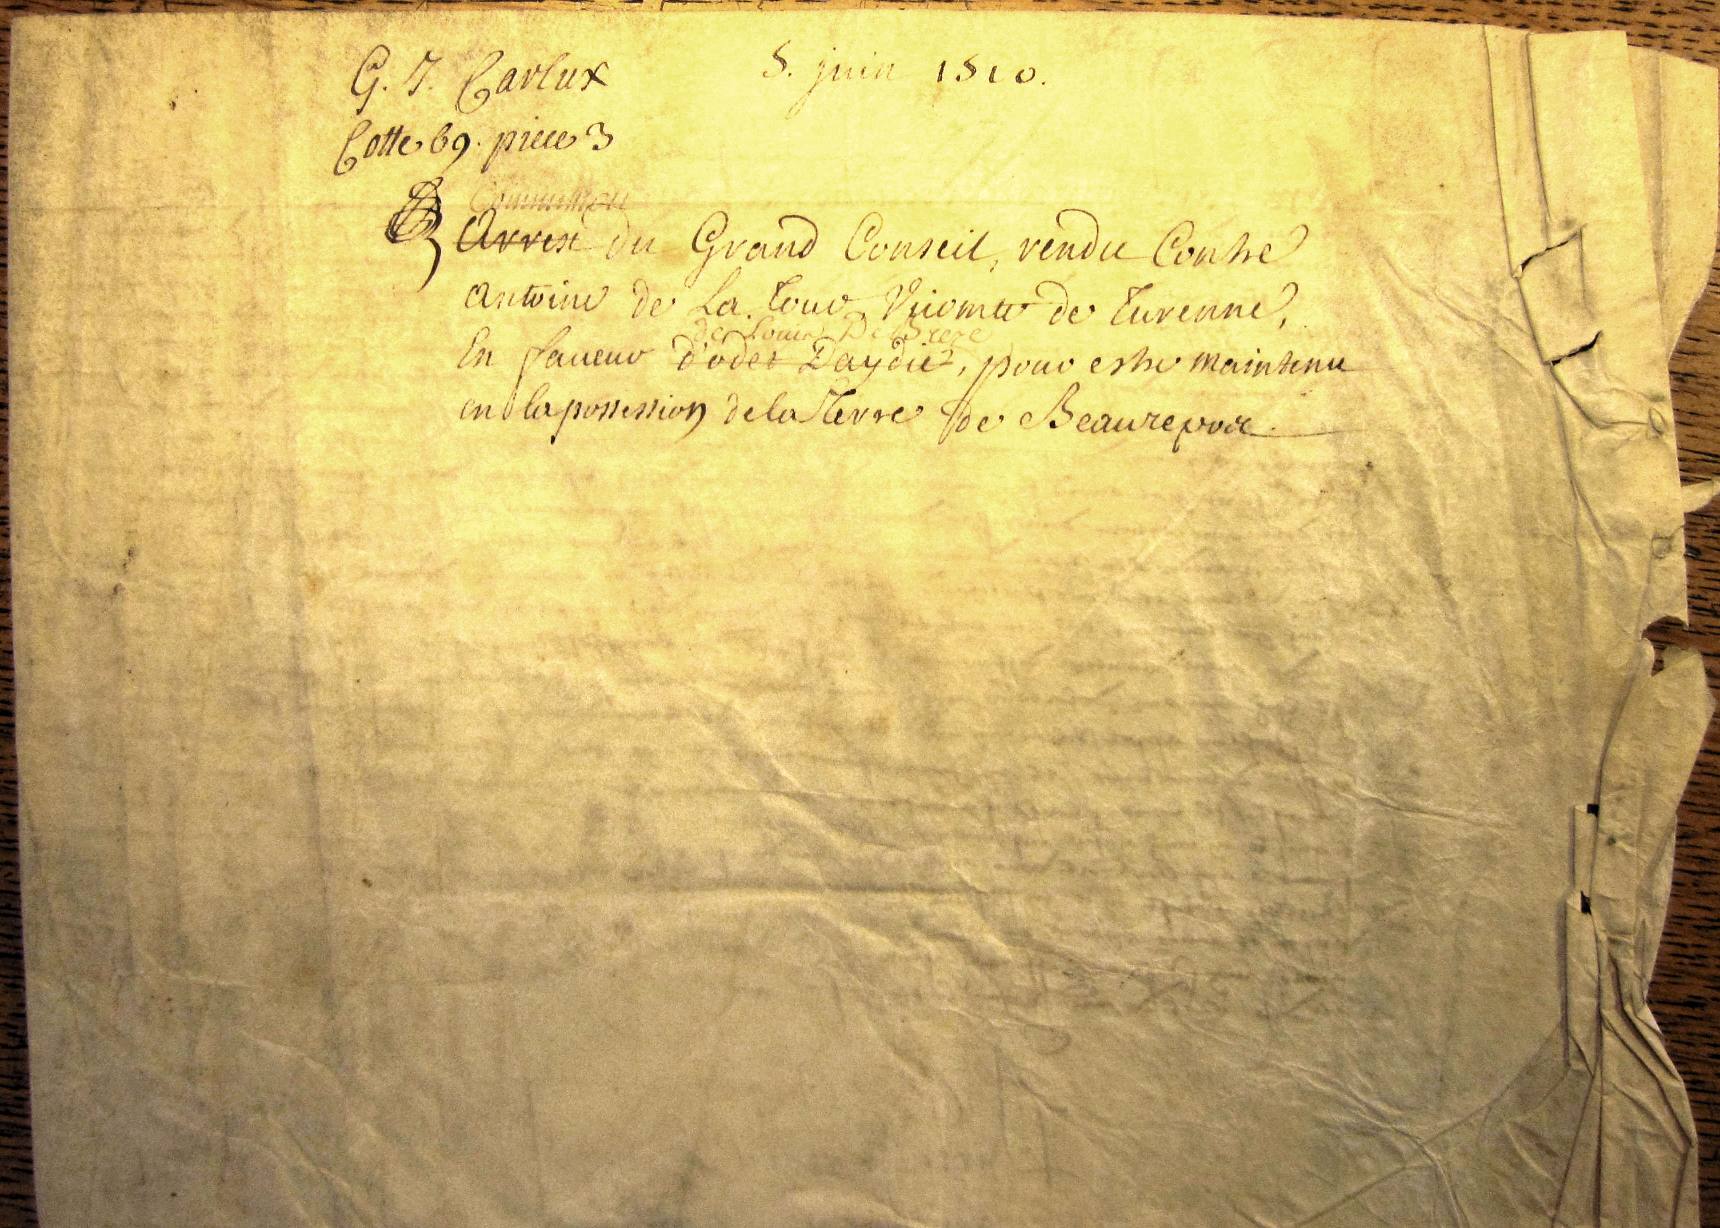 G. J. Carlux
5. juin 1510.
Cotte 69. piece 3
Commission
Arrest du Grand Conseil, rendu Contre
Antoine de La Tour Vicomte de Turenne,
de Louis De Breze
En faueur d'odet Daydie, pour estre maintenu
en la possession de la Terre de Beaurepoz